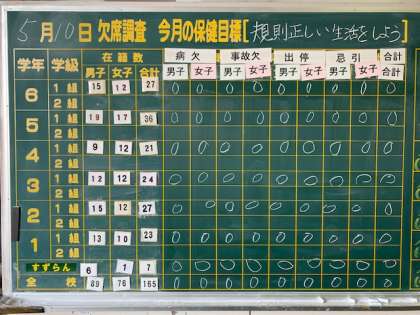 5月10日 欠席調査 今月の保健目標[規則正しい生活をしよう]
学年 学級 在籍数 病欠 事故欠 出停 忌引 合計
男子 女子 合計 男子 女子 男子 女子 男子 女子 男子 女子 合計
6 1組 15 12 27 0 0 0 0 0 0 0 0 0
2組
5 1組 19 17 36 0 0 0 0 0 0 0 0 0
2組
4 1組 9 12 21 0 0 0 0 0 0 0 0 0
2組
3 1組 12 12 24 0 0 0 0 0 0 0 0 0
2組
2 1組 15 12 27 0 0 0 0 0 0 0 0 0
2組
1 1組 13 10 23 0 0 0 0 0 0 0 0 0
2組
すずらん 6 1 7 0 0 0 0 0 0 0 0 0
全校 89 76 165 0 0 0 0 0 0 0 0 0